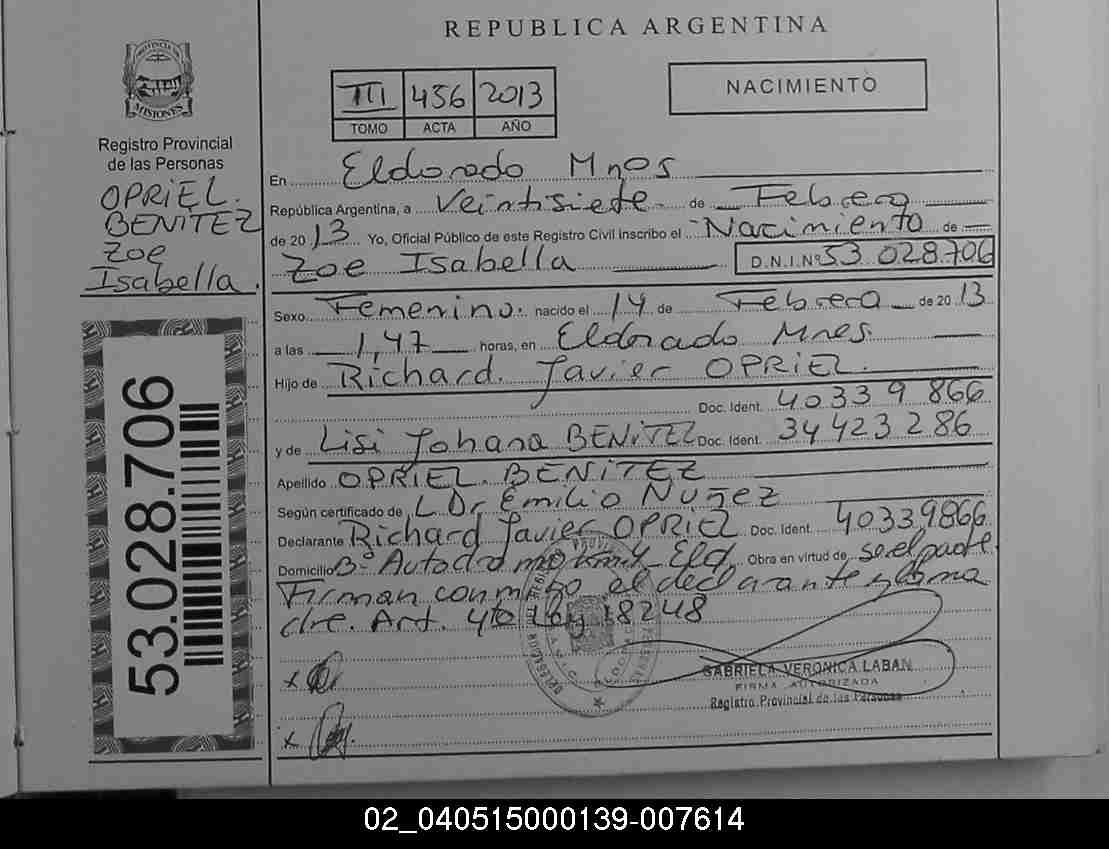 REPUBLICA ARGENTINA
PROVINCIA DE
MISIONES
Registro Provincial
de las Personas
OPRIEL.
BENITEZ
Zoe
Isabella.
53.028.706
III 456 2013
TOMO ACTA AÑO
NACIMIENTO
En Eldorado Mnes
República Argentina, a Veintisiete de Febrero
de 2013 Yo, Oficial Público de este Registro Civil inscribo el Nacimiento de
Zoe Isabella D.N.I.Nº 53.028.706
Sexo Femenino. nacido el 14 de Febrero de 2013
a las 1,47 horas, en Eldorado Mnes
Hijo de Richard Javier OPRIEL.
Doc. Ident. 40339 866
y de Lisi Johana BENITEZ Doc. Ident. 34423286
Apellido OPRIEL. BENITEZ
Según certificado de L. Dr Emilio Nuñez
Declarante Richard Javier OPRIEL Doc. Ident. 40339866
Domicilio Bº Autodromo Km 4 Eld. Obra en virtud de ser el padre.
Firman conmigo el declarante y la ma
dre. Art. 4to Ley 18248
x
GABRIELA VERONICA LABAN
FIRMA AUTORIZADA
Registro Provincial de las Personas
x
02_040515000139-007614